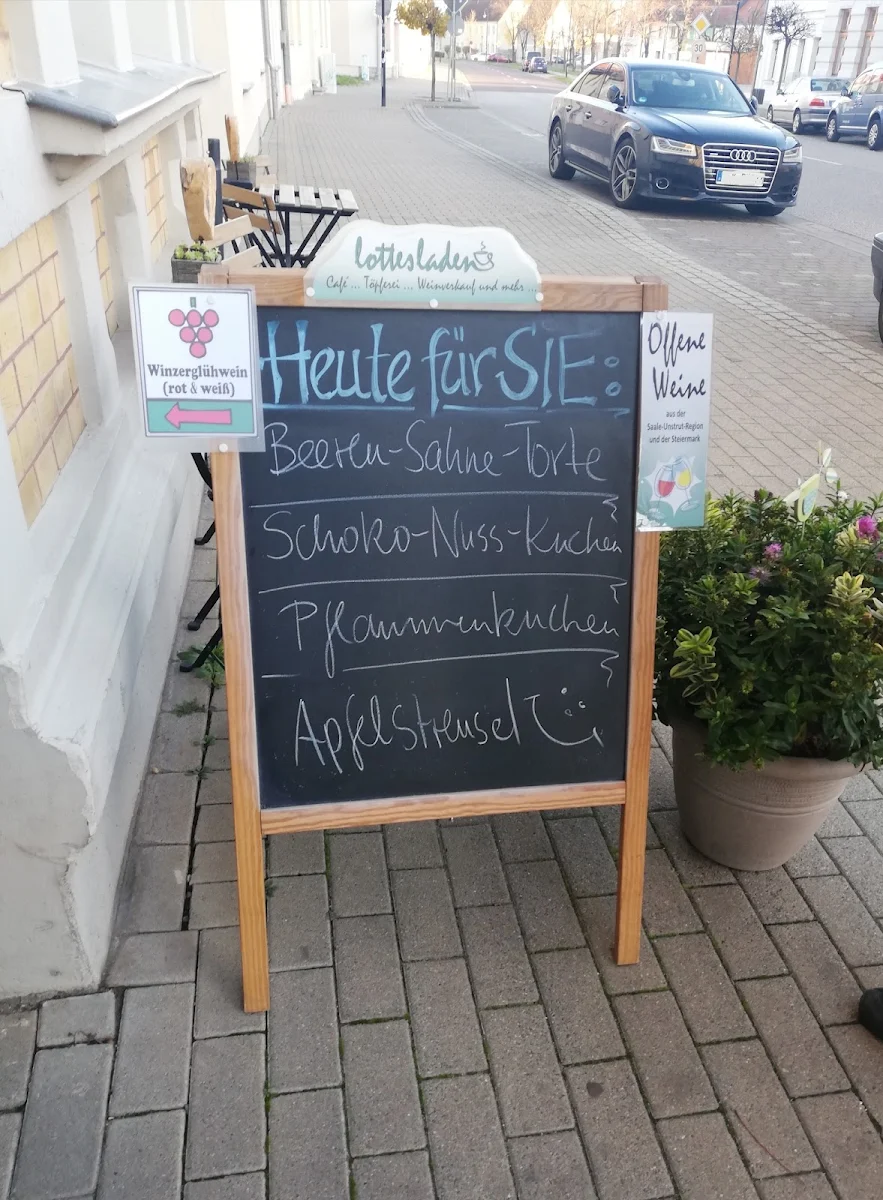 lottesladen
Café ... Töpferei ... Weinverkauf und mehr ...
Winzerglühwein
(rot & weiß)
Heute für SIE:
Beeren-Sahne-Torte
Schoko-Nuss-Kuchen
Pflaumenkuchen
Apfelstreusel
Offene
Weine
aus der
Saale-Unstrut-Region
und der Steiermark
30